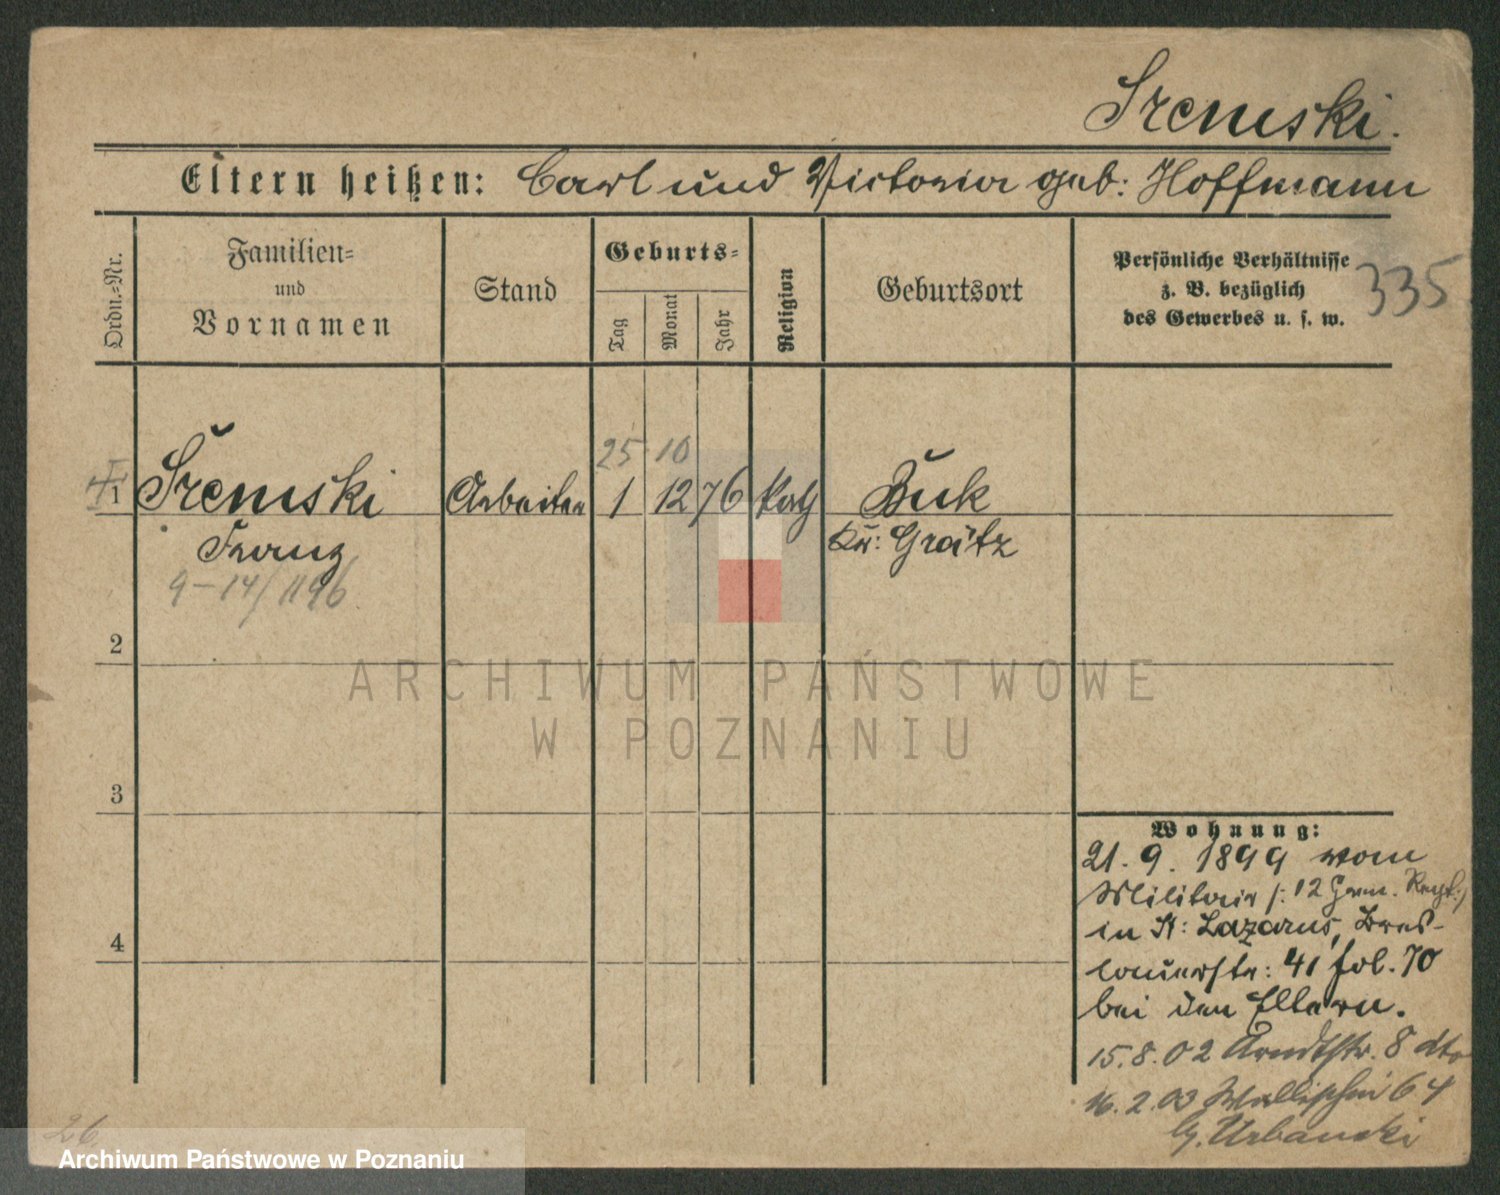 Sremski.
Eltern heißen: Carl und Victoria geb: Hoffmann
Ordn.-Nr.
Familien-
und
Vornamen
Stand
Geburts-
Tag
Monat
Jahr
Religion
Geburtsort
Persönliche Verhältnisse
z. B. bezüglich
des Gewerbes u. s. w.
335
25 10
1 Śremski Arbeiter 1 12 76 kath Buk
Franz Kr: Grätz
9-14/1196
2
ARCHIWUM PAŃSTWOWE
W POZNANIU
3
Wohnung:
21. 9. 1899 vom
Militair /: 12 Gren. Regt:/
in St: Lazarus, Bres-
lauerstr: 41 fol. 70
4
bei den Eltern.
15.8.02 Arndtstr. 8 dto
16.2.03 Wallischei 64
b/. Urbanski
26.
Archiwum Państwowe w Poznaniu